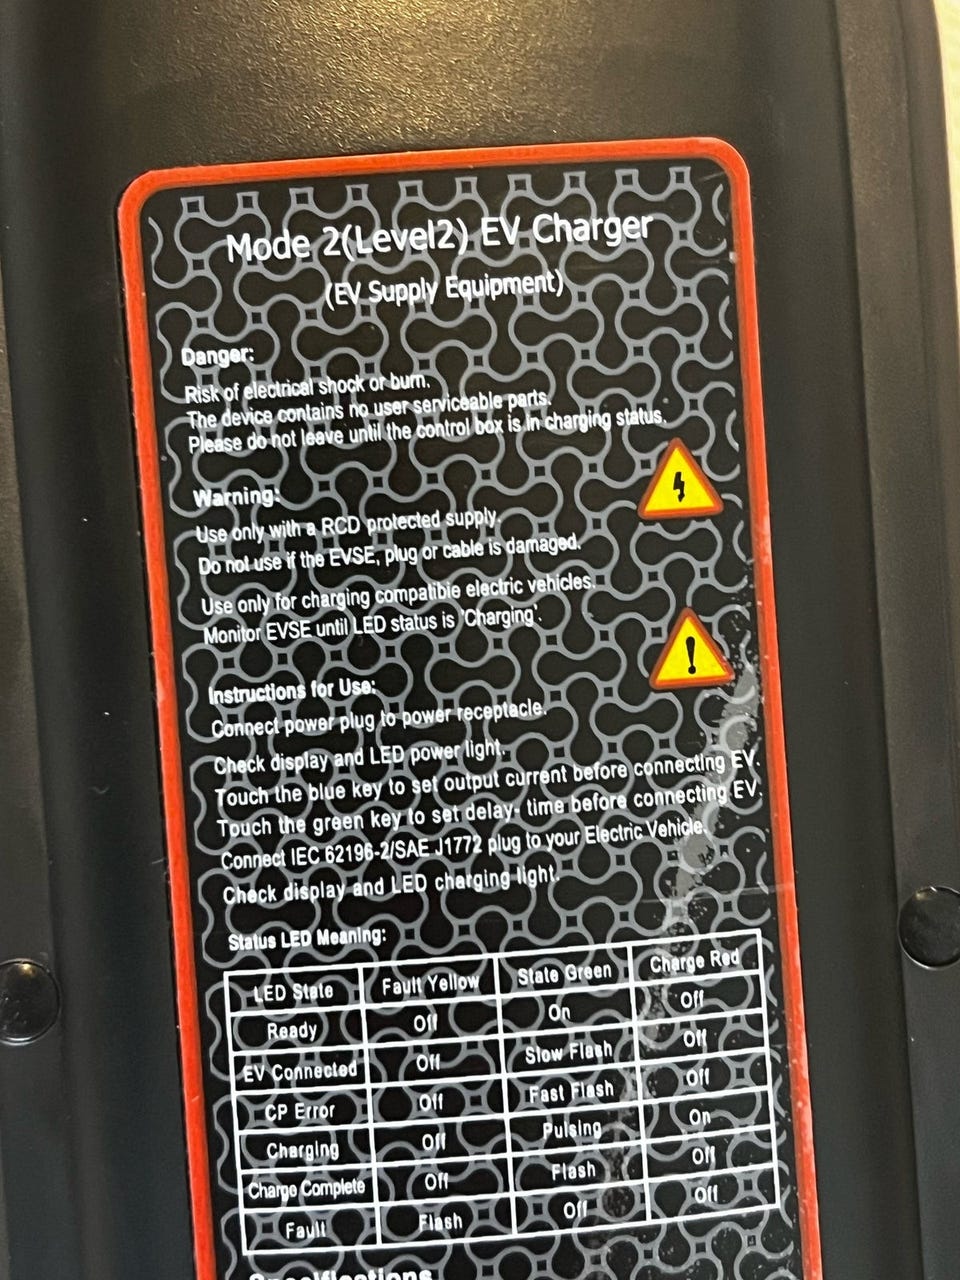 Mode 2(Level2) EV Charger
(EV Supply Equipment)
Danger:
Risk of electrical shock or burn.
The device contains no user serviceable parts.
Please do not leave until the control box is in charging status.
Warning:
Use only with a RCD protected supply.
Do not use if the EVSE, plug or cable is damaged.
Use only for charging compatible electric vehicles.
Monitor EVSE until LED status is 'Charging'.
Instructions for Use:
Connect power plug to power receptacle.
Check display and LED power light.
Touch the blue key to set output current before connecting EV.
Touch the green key to set delay- time before connecting EV.
Connect IEC 62196-2/SAE J1772 plug to your Electric Vehicle.
Check display and LED charging light.
Status LED Meaning:
LED State Fault Yellow State Green Charge Red
Ready Off On Off
EV Connected Off Slow Flash Off
CP Error Off Fast Flash Off
Charging Off Pulsing On
Charge Complete Off Flash Off
Fault Flash Off Off
Specifications